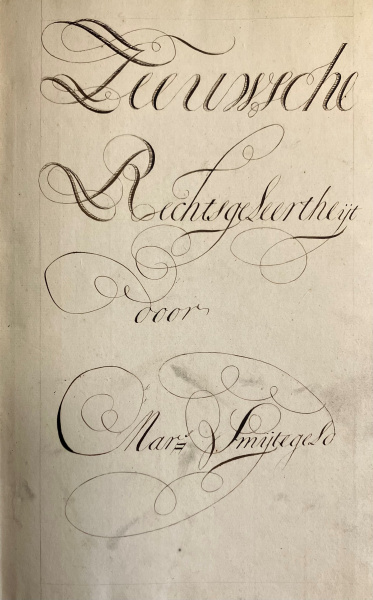 Zeeuwsche
Rechtsgeleertheijt
door
Mar: Smijtegeld